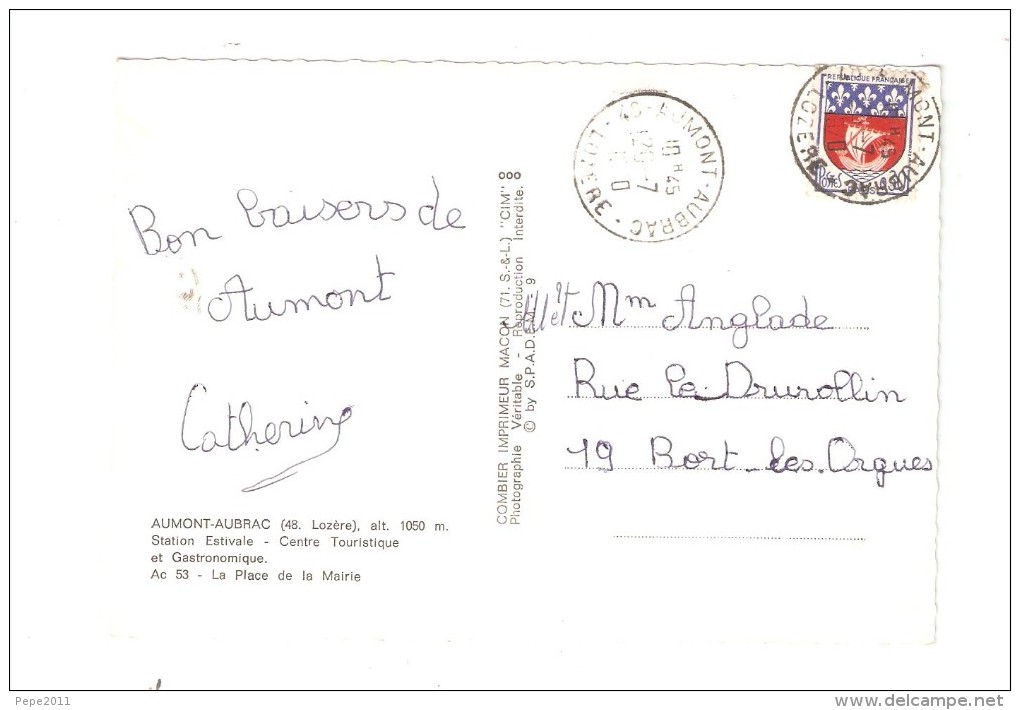 Bon baisers de
Aumont
Catherine
AUMONT-AUBRAC (48. Lozère), alt. 1050 m.
Station Estivale - Centre Touristique
et Gastronomique.
Ac 53 - La Place de la Mairie
COMBIER IMPRIMEUR MACON (71. S.-&-L.) "CIM"
Photographie Véritable - Reproduction Interdite.
© by S.P.A.D.E.M. 9
48 - AUMONT-AUBRAC - LOZERE
16 H 45
29-7
REPUBLIQUE FRANÇAISE
et Mm Anglade
Rue le Drurollin
19 Bort-les-Orgues
Pepe2011
www.delcampe.net